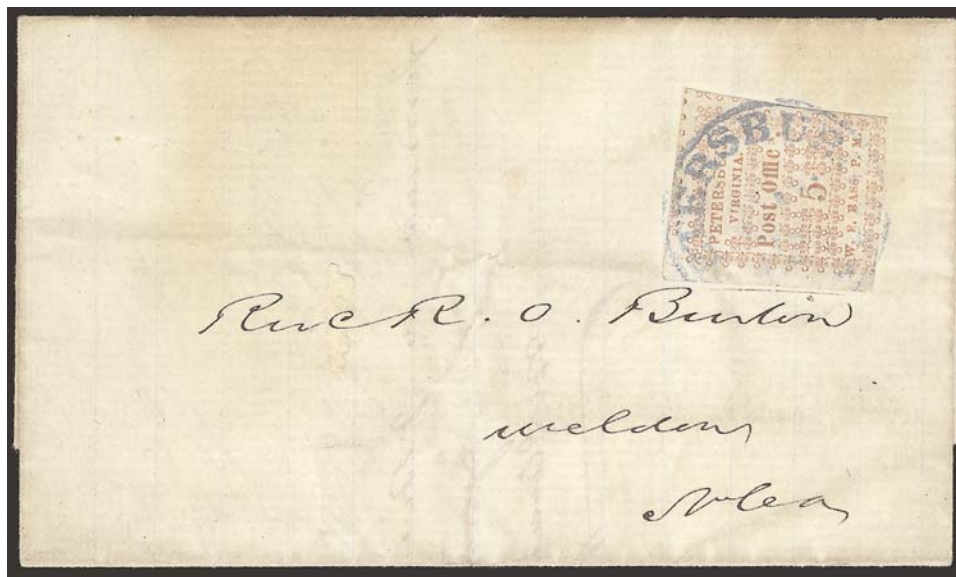 ERSBU
PETERSB
VIRGINIA.
Post Offic
5
W. E. BASS, P. M.
R. O. Burton
Weldon